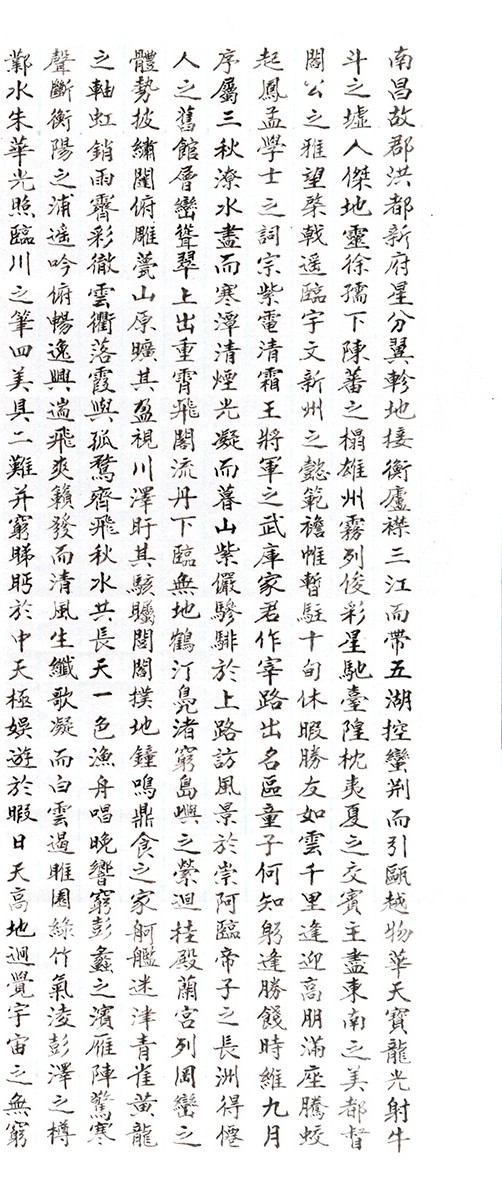 南昌故郡洪都新府星分翼軫地接衡廬襟三江而帶五湖控蠻荆而引甌越物華天寶龍光射牛
斗之墟人傑地靈徐孺下陳蕃之榻雄州霧列俊彩星馳臺隍枕夷夏之交賓主盡東南之美都督
閻公之雅望棨戟遥臨宇文新州之懿範襜帷暫駐十旬休暇勝友如雲千里逢迎高朋滿座騰蛟
起鳳孟學士之詞宗紫電清霜王將軍之武庫家君作宰路出名區童子何知躬逢勝餞時維九月
序屬三秋潦水盡而寒潭清煙光凝而暮山紫儼驂騑於上路訪風景於崇阿臨帝子之長洲得僊
人之舊館層巒聳翠上出重霄飛閣流丹下臨無地鶴汀鳧渚窮島嶼之縈迴桂殿蘭宫列岡巒之
體勢披繡闥俯雕甍山原曠其盈視川澤盱其駭矚閭閻撲地鐘鳴鼎食之家舸艦迷津青雀黄龍
之軸虹銷雨霽彩徹雲衢落霞與孤鶩齊飛秋水共長天一色漁舟唱晚響窮彭蠡之濱雁陣驚寒
聲斷衡陽之浦遥吟俯暢逸興遄飛爽籟發而清風生纖歌凝而白雲遏睢園綠竹氣淩彭澤之樽
鄴水朱華光照臨川之筆四美具二難并窮睇眄於中天極娛遊於暇日天高地迥覺宇宙之無窮